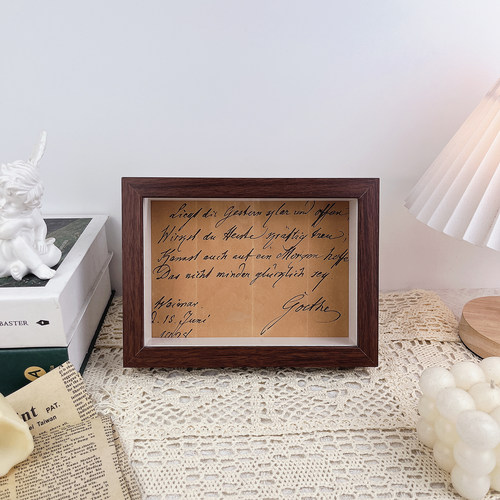 Liegt dir Gestern klar und offen
Wirkst du Heute kräftig frey,
Kannst auch auf ein Morgen hoffen
Das nicht minder glücklich sey
Weimar
d. 15. Juni
Goethe
BASTER
PAT.
Taiwan